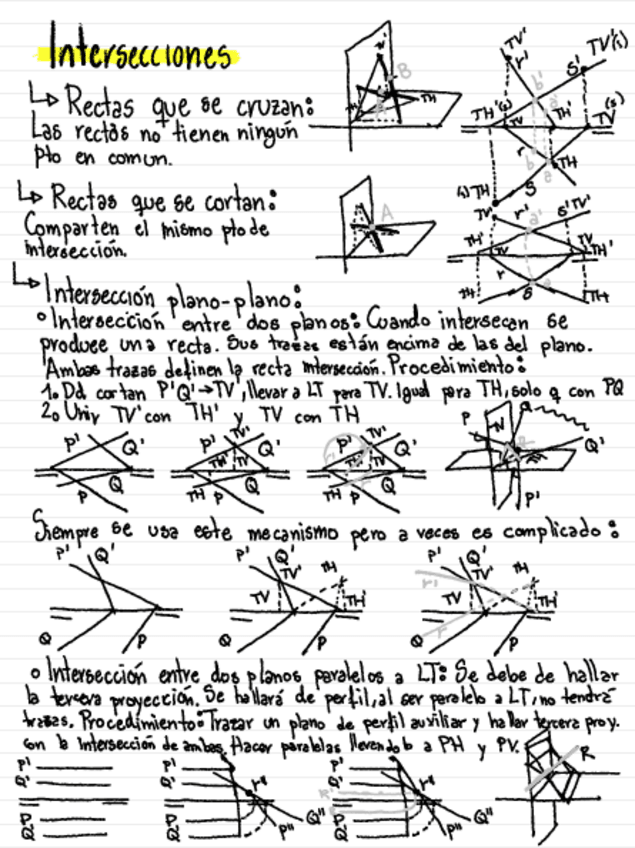 Intersecciones
↳ Rectas que se cruzan:
Las rectas no tienen ningún
pto en comun.
↳ Rectas que se cortan:
Comparten el mismo pto de
intersección.
↳ Intersección plano-plano:
o Intersección entre dos planos: Cuando intersecan se
produce una recta. Sus trazas están encima de las del plano.
Ambas trazas definen la recta intersección. Procedimiento:
1. Dd cortan P'Q'→TV', llevar a LT para TV. Igual para TH, solo q con PQ
2. Unir TV' con TH' y TV con TH
P' Q' P Q
P' TV' Q' TH' TV TH P Q
P' TV' Q' TV TH P Q
P Q Q' P'
Siempre se usa este mecanismo pero a veces es complicado:
P' Q' Q P
P' Q' TV' TH TV TH' Q P
P' Q' r' TV' TH TV TH' Q r P
o Intersección entre dos planos paralelos a LT: Se debe de hallar
la tercera proyección. Se hallará de perfil, al ser paralelo a LT, no tendrá
trazas. Procedimiento: Trazar un plano de perfil auxiliar y hallar tercera proy.
con la intersección de ambas. Hacer paralelas llevándolo a PH y PV.
P' Q' P Q
P' Q' r'' P Q P'' Q''
P' Q' r'' P Q P'' Q''
R